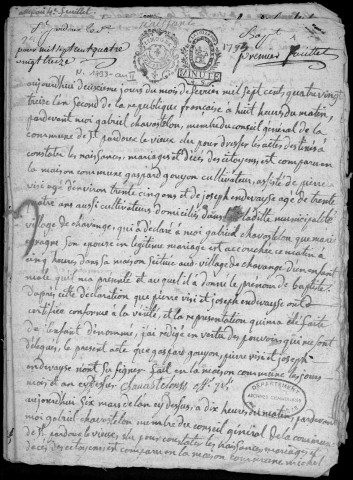 St pardoux le vx
pour mil sept cent quatre
vingt treize
N. 1793-an II
1793
premier feuillet
MINUTE
aujourdhuy deuxieme jours du mois de fevrier mil sept cent quatre vingt
treize l'an second de la republique française à huit heurs du matin
pardevant moi gabriel chavastelon, membre du conseil general de la
commune de St pardoux le vieux, élu pour dresser les actes destinés à
constater les naisances, mariages et décès des citoyens, est comparu en
la maison commune gaspard gouyon cultivateur, assisté de pierre
visi agé d'environ trente cinq ans et de joseph endurayse agé de trente
ans aussi cultivateurs domiciliés dans ladite municipalité
village de chavange, qui a déclaré à moi gabriel chavastelon que marie
son epouse en legitime mariage est accouchée ce matin à
cinq heurs dans sa maison située aud village de chavange d'un enfant
male qui m'a presenté et auquel il a donné le prenom de baptiste
d'après cette declaration que pierre visi et joseph endurayse ont
certifiée conforme à la verité, et la representation qui m'a été faite
de l'enfant dénommé, j'ai redigé en vertu des pouvoirs qui me sont
délegués, le present acte que gaspard gouyon, pierre visi et joseph
endurayse n'ont su signer fait en la maison commune les jours
mois et an cy dessus
DEPARTEMENT
ARCHIVES COMMUNALES
aujourdhuy six mars de l'an cy dessus, à dix heurs du matin, pardevant
moi gabriel chavastelon membre du conseil general de la commune
de St pardoux le vieux, élu pour constater les naisances, mariages et
décès des citoyens, est comparu en la maison commune michel